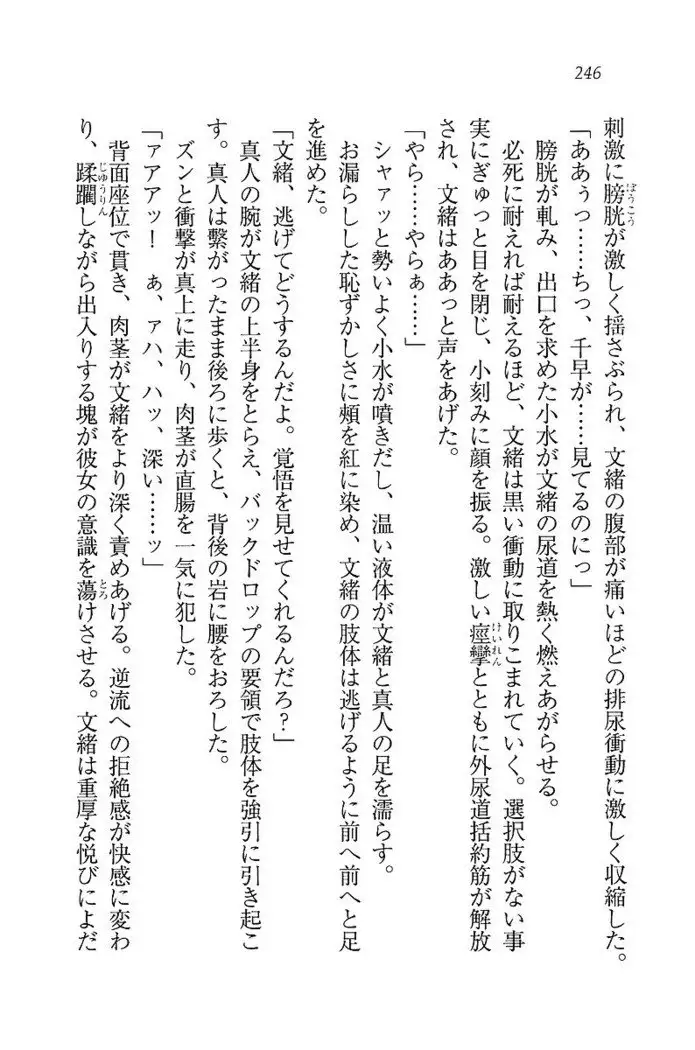 246
ぼうこう
刺激に膀胱が激しく揺さぶられ、文緒の腹部が痛いほどの排尿衝動に激しく収縮した。
「ああぅっ……ちっ、千早が……見てるのにっ」
膀胱が軋み、出口を求めた小水が文緒の尿道を熱く燃えあがらせる。
必死に耐えれば耐えるほど、文緒は黒い衝動に取りこまれていく。選択肢がない事
けいれん
実にぎゅっと目を閉じ、小刻みに顔を振る。激しい痙攣とともに外尿道括約筋が解放
され、文緒はああっと声をあげた。
「やら……やらぁ……」
シャァッと勢いよく小水が噴きだし、温い液体が文緒と真人の足を濡らす。
お漏らしした恥ずかしさに頬を紅に染め、文緒の肢体は逃げるように前へ前へと足
を進めた。
「文緒、逃げてどうするんだよ。覚悟を見せてくれるんだろ?」
真人の腕が文緒の上半身をとらえ、バックドロップの要領で肢体を強引に引き起こ
す。真人は繋がったまま後ろに歩くと、背後の岩に腰をおろした。
ズンと衝撃が真上に走り、肉茎が直腸を一気に犯した。
「ァアアッ! ぁ、ァハ、ハッ、深い……ッ」
背面座位で貫き、肉茎が文緒をより深く責めあげる。逆流への拒絶感が快感に変わ
じゅうりん
とろ
り、蹂躙しながら出入りする塊が彼女の意識を蕩けさせる。文緒は重厚な悦びによだ